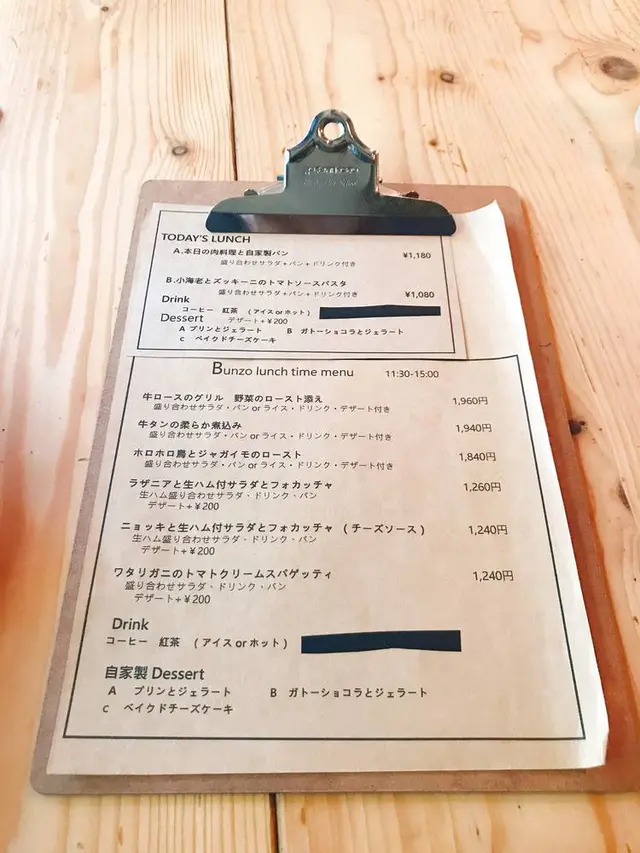 TODAY'S LUNCH
A.本日の肉料理と自家製パン ¥1,180
盛り合わせサラダ+パン+ドリンク付き
B.小海老とズッキーニのトマトソースパスタ
盛り合わせサラダ+パン+ドリンク付き ¥1,080
Drink
コーヒー 紅茶 (アイス or ホット)
Dessert デザート+¥200
A プリンとジェラート B ガトーショコラとジェラート
C ベイクドチーズケーキ
Bunzo lunch time menu 11:30-15:00
牛ロースのグリル 野菜のロースト添え 1,960円
盛り合わせサラダ・パン or ライス・ドリンク・デザート付き
牛タンの柔らか煮込み 1,940円
盛り合わせサラダ・パン or ライス・ドリンク・デザート付き
ホロホロ鳥とジャガイモのロースト 1,840円
盛り合わせサラダ・パン or ライス・ドリンク・デザート付き
ラザニアと生ハム付サラダとフォカッチャ 1,260円
生ハム盛り合わせサラダ・ドリンク・パン
デザート+¥200
ニョッキと生ハム付サラダとフォカッチャ (チーズソース) 1,240円
生ハム盛り合わせサラダ・ドリンク・パン
デザート+¥200
ワタリガニのトマトクリームスパゲッティ 1,240円
盛り合わせサラダ・ドリンク・パン
デザート+¥200
Drink
コーヒー 紅茶 (アイス or ホット)
自家製 Dessert
A プリンとジェラート B ガトーショコラとジェラート
C ベイクドチーズケーキ